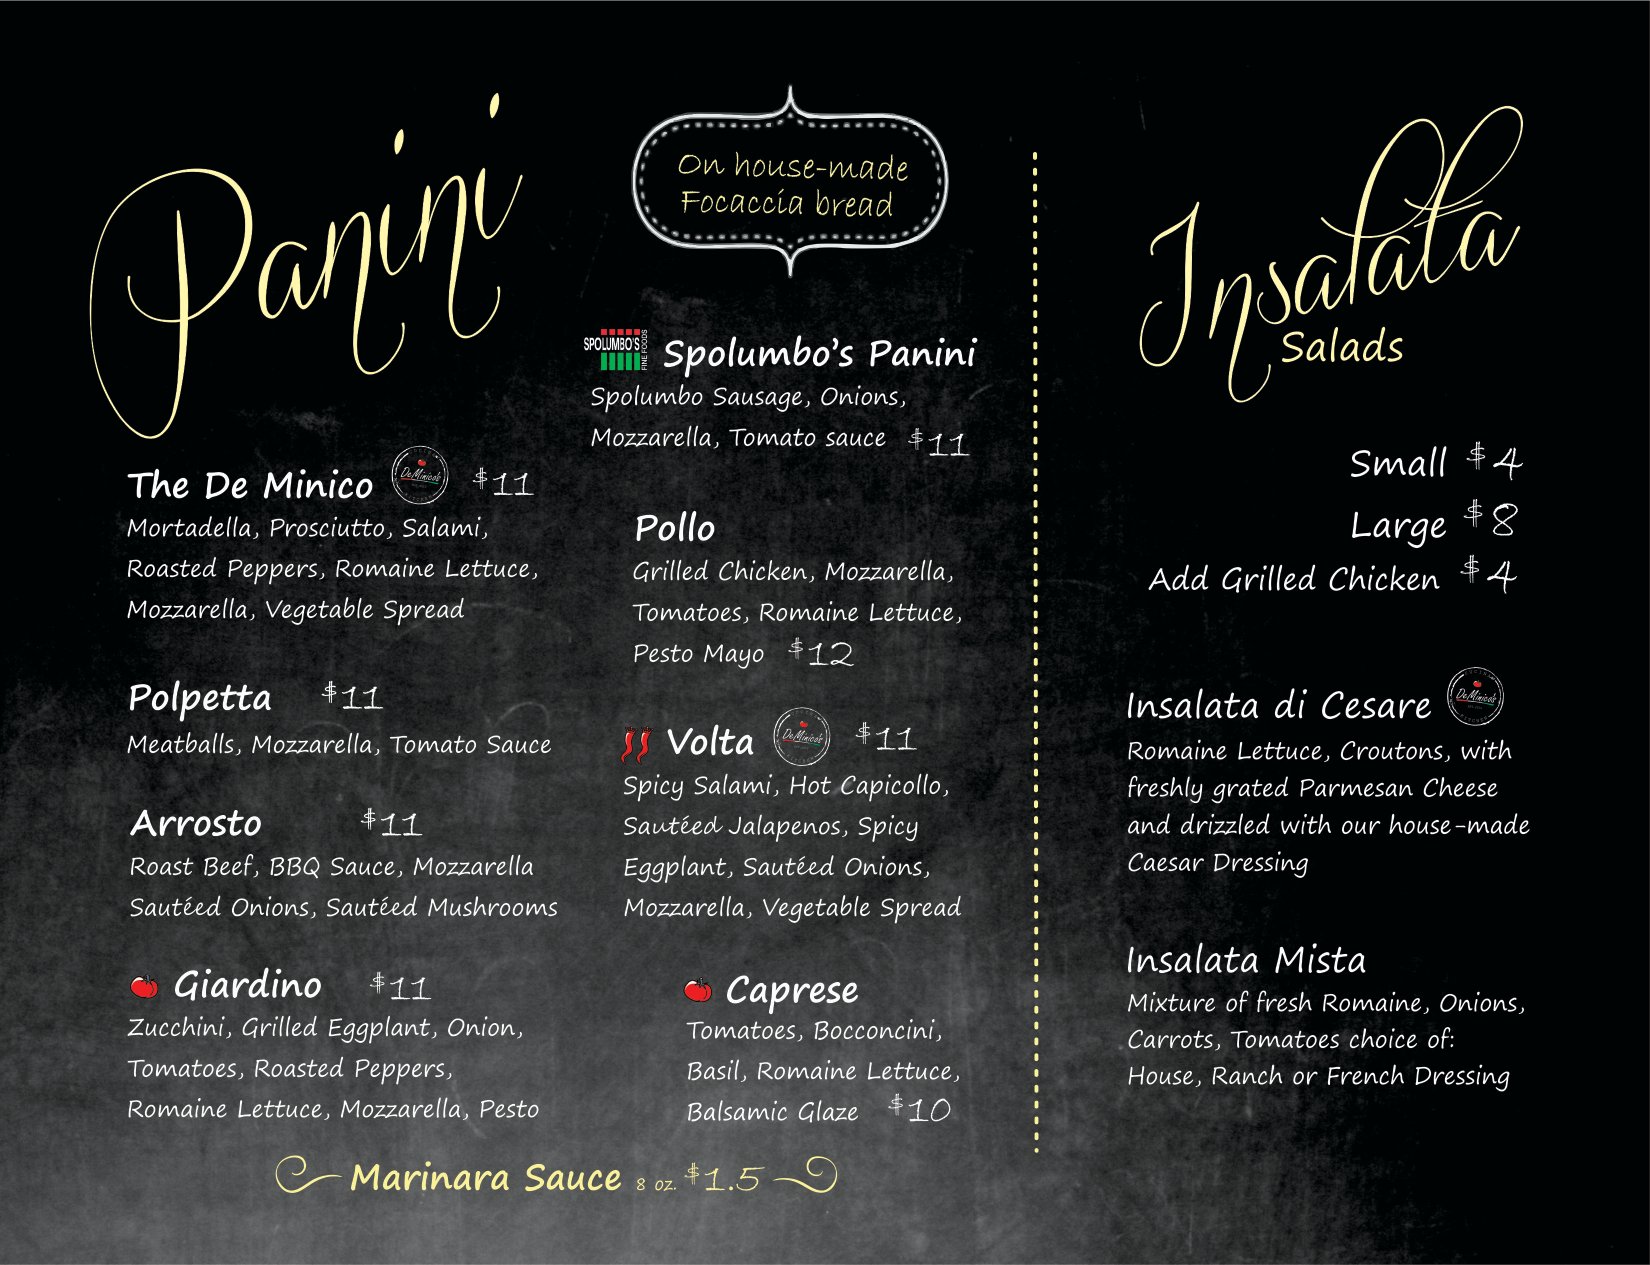 Panini
On house-made
Focaccia bread
The De Minico DeMinico's $11
Mortadella, Prosciutto, Salami,
Roasted Peppers, Romaine Lettuce,
Mozzarella, Vegetable Spread
Polpetta $11
Meatballs, Mozzarella, Tomato Sauce
Arrosto $11
Roast Beef, BBQ Sauce, Mozzarella
Sautéed Onions, Sautéed Mushrooms
Giardino $11
Zucchini, Grilled Eggplant, Onion,
Tomatoes, Roasted Peppers,
Romaine Lettuce, Mozzarella, Pesto
SPOLUMBO'S FINE FOODS Spolumbo's Panini
Spolumbo Sausage, Onions,
Mozzarella, Tomato sauce $11
Pollo
Grilled Chicken, Mozzarella,
Tomatoes, Romaine Lettuce,
Pesto Mayo $12
Volta DeMinico's $11
Spicy Salami, Hot Capicollo,
Sautéed Jalapenos, Spicy
Eggplant, Sautéed Onions,
Mozzarella, Vegetable Spread
Caprese
Tomatoes, Bocconcini,
Basil, Romaine Lettuce,
Balsamic Glaze $10
Marinara Sauce 8 oz. $1.5
Insalata
Salads
Small $4
Large $8
Add Grilled Chicken $4
Insalata di Cesare DeMinico's
Romaine Lettuce, Croutons, with
freshly grated Parmesan Cheese
and drizzled with our house-made
Caesar Dressing
Insalata Mista
Mixture of fresh Romaine, Onions,
Carrots, Tomatoes choice of:
House, Ranch or French Dressing